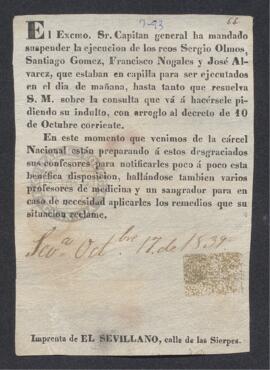 7-93
66
El Excmo. Sr. Capitan general ha mandado
suspender la ejecucion de los reos Sergio Olmos,
Santiago Gomez, Francisco Nogales y José Al-
varez, que estaban en capilla para ser ejecutados
en el dia de mañana, hasta tanto que resuelva
S. M. sobre la consulta que vá á hacérsele pi-
diendo su indulto, con arreglo al decreto de 10
de Octubre corriente.
En este momento que venimos de la cárcel
Nacional están preparando á estos desgraciados
sus confesores para notificarles poco á poco esta
benéfica disposicion, hallándose tambien varios
profesores de medicina y un sangrador para en
caso de necesidad aplicarles los remedios que su
situacion reclame.
Octbre 17. de 1839
Imprenta de EL SEVILLANO, calle de las Sierpes.